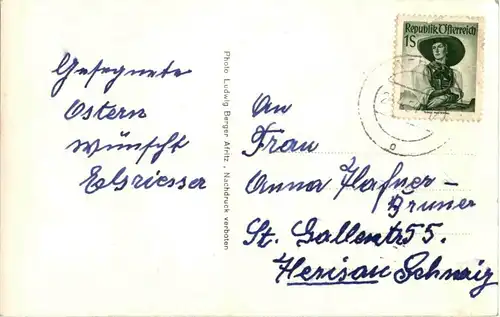 Gesegnete
Ostern
wünscht
Photo Ludwig Berger Afritz, Nachdruck verboten
Republik Österreich
1S
An
Frau
Anna Hafner-
Bruner
St. Gallerstr 55.
Herisau Schweiz